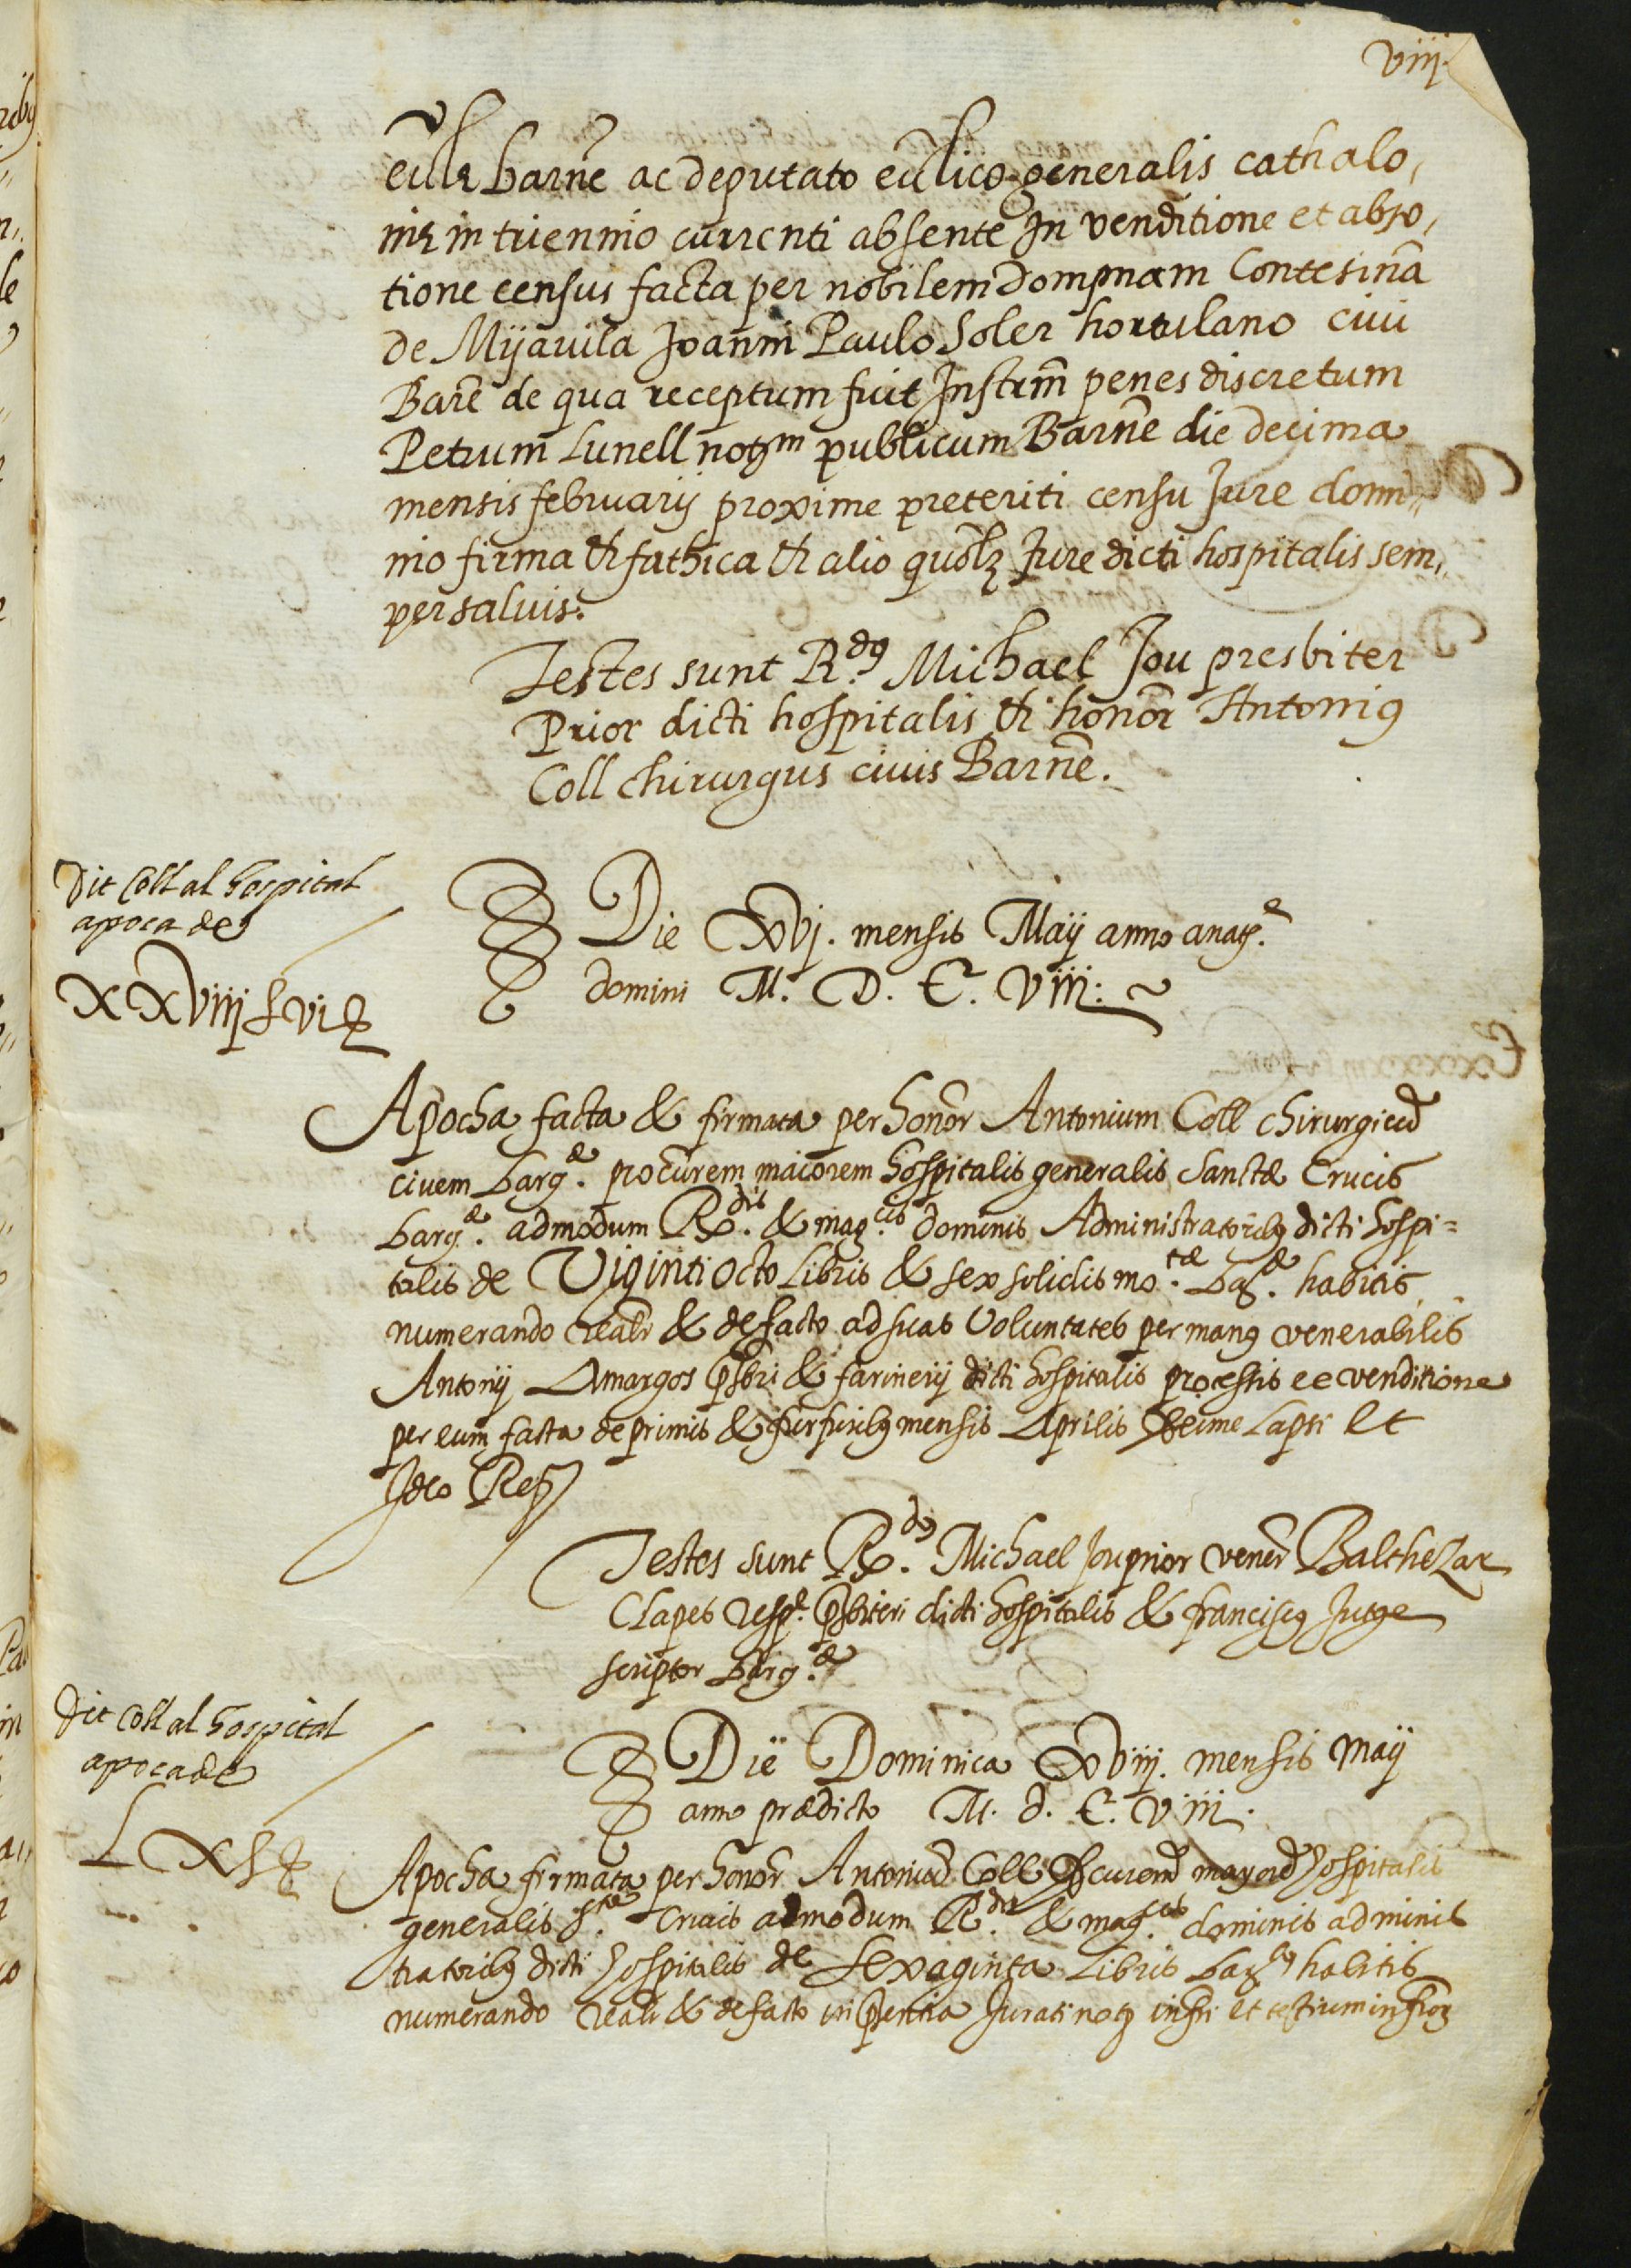 viiij.
eccłe barnẽ ac deputato eccłico generalis cathalo,
nię in triennio currenti absente In venditione et abso,
tione census facta per nobilem dompnam Contesinã
de Mijavila Joanni Paulo Soler hortulano civi
Barẽ de qua receptum fuit Instrm̃ penes discretum
Petrum Lunell notm publicum Barnẽ die decima
mensis februarij proxime preteriti censu Jure domi,,
nio firma et fathica et alio quolz Jure dicti hospitalis sem,,
per salvis.
Testes sunt R.dus Michael Jou presbiter
Prior dicti hospitalis et honor Antonius
Coll chirurgus civis Barnẽ.
Dit Coll al hospital
apoca de
XXviiij £ vi ß
Die Xvj. mensis Maij anno a nat.e
domini M. D. C. Viiij.
Apocha facta & firmata per honor Antonium Coll chirurgicũ
civem barq.æ procurem maiorem hospitalis generalis Sanctæ Crucis
barq.æ admodum R.dis & mag.cis dominis Administratoribus dicti hospi=
talis de Viginti Octo Libris & sex solidis mo.tæ baq.æ habitis
numerando reali & de facto ad suas Voluntates per manus venerabilis
Antonij Amargos pšbri & farinerij dicti hospitalis processis ee venditione
per eum facta de primis & furfuribus mensis Aprilis lapsi Et
Ideo Reñ
Testes sunt R.dus Michael Jou prior vener Balthezar
Clapes resp.e pšbiteri dicti hospitalis & franciscus Jutge
scriptor barq.æ
Dit Coll al hospital
apoca de
LX £ ß
Die Dominica Xviiij. mensis Maij
anno prædicto M. d. C. viiij.
Apocha firmata per honor Antoniũ Coll procurorẽ mayorẽ hospitalis
generalis S.tæ Crucis admodum R.dis & mag.cis dominis adminis
tratoribus dicti hospitalis de Sexaginta Libris barq habitis
numerando reali & de facto in p̃sentia Jurati not infři et testium infrор